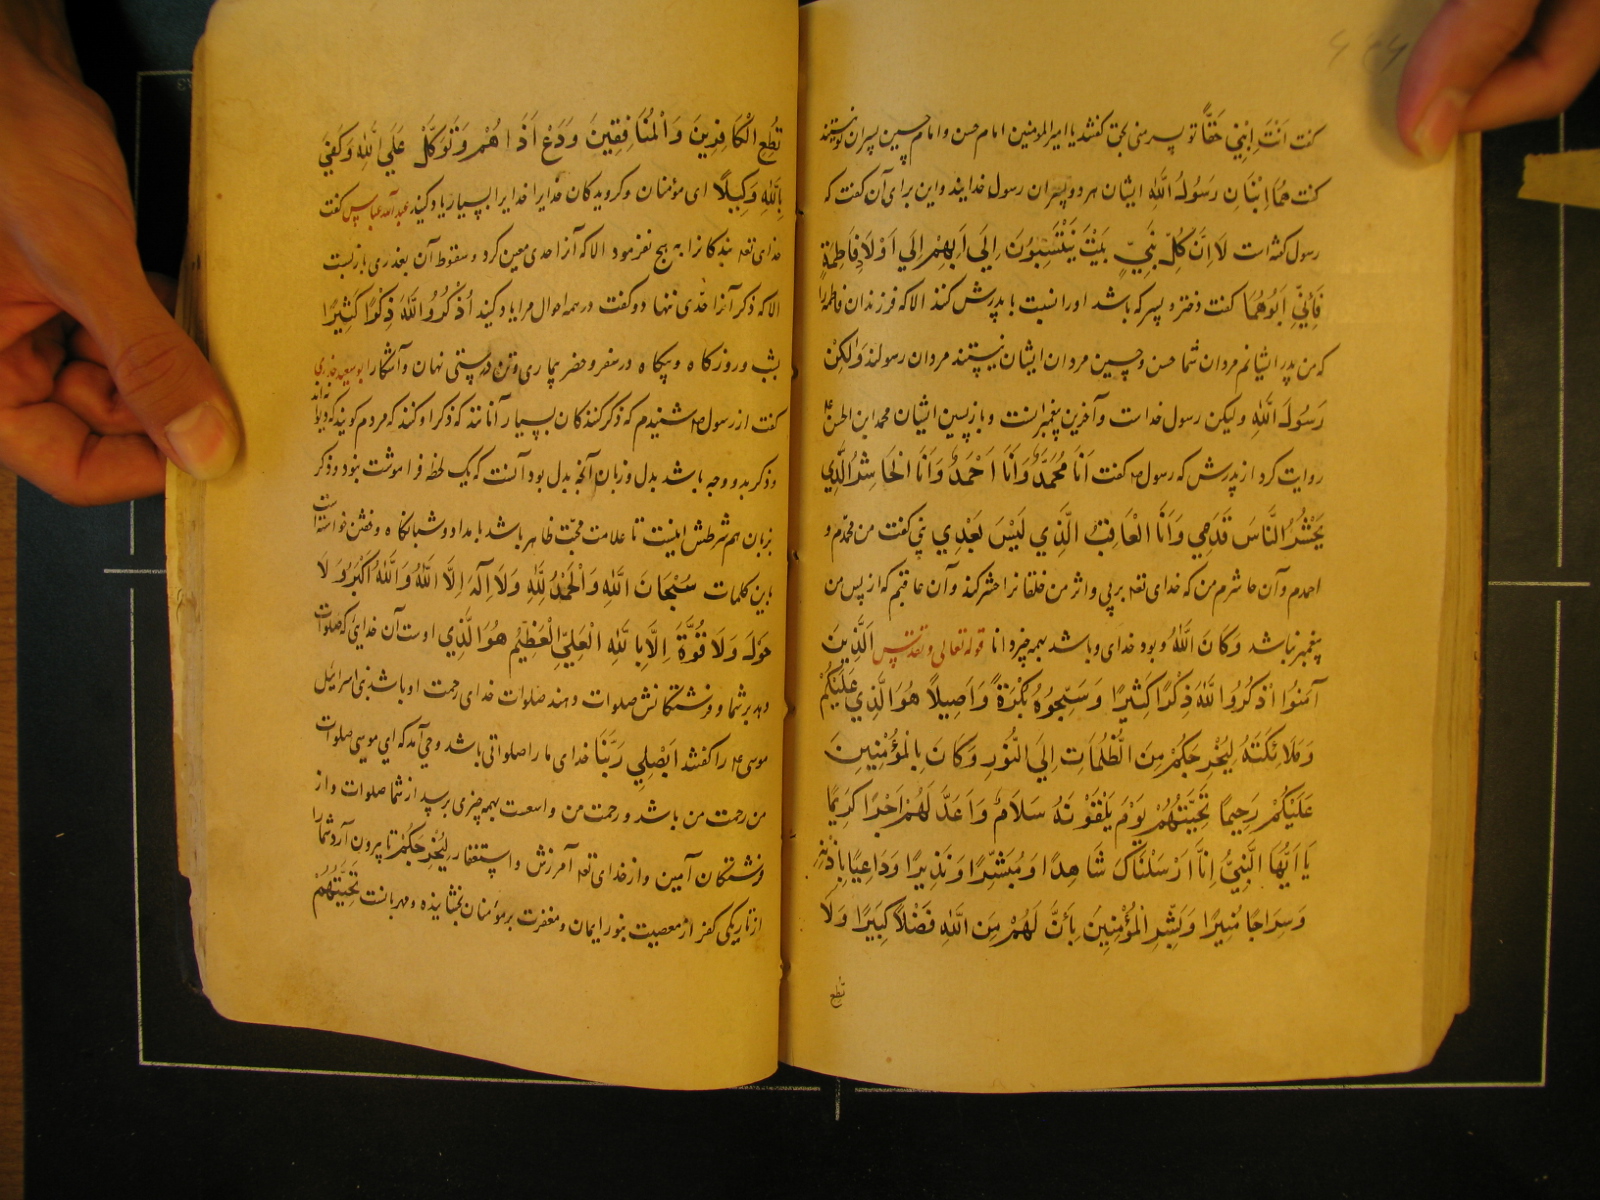 گفت اَنْتَ اِبْنِي حَقّاً تو پسر منی بحق گفتند یا امیرالمؤمنین امام حسن و امام حسین پسران تو نیستند
گفت هُمَا اِبْنَانِ رَسُولِ اللّٰهِ ایشان هر دو پسران رسول خدایند و این برای آن گفت که
رسول گفته است لَا اِنَّ كُلَّ نَبِيٍّ بَيْتَ يَنْتَسِبُونَ اِلَي اَبِهِمْ اِلَي اَوْلَادِ فَاطِمَةَ
فَاِنِّي اَبُوهُمَا گفت دختر و پسر که باشد او را نسبت با پدرش کنند الا که فرزندان فاطمه را
که من پدر ایشانم مردان شما حسن و حسین مردان ایشان نیستند مردان رسولند وَلٰكِنْ
رَسُولَ اللّٰهِ ولیکن رسول خداست و آخرین پیغمبرانست و بازپسین ایشان محمد ابن الحسن
روایت کرد از پدرش که رسول ص گفت اَنَا مُحَمَّدٌ وَاَنَا اَحْمَدُ وَاَنَا الْحَاشِرُ الَّذِي
يَحْشُرُ النَّاسَ قَدَمِي وَاَنَا الْعَاقِبُ الَّذِي لَيْسَ بَعْدِي نَبِيٌّ گفت من محمدم و
احمدم و آن حاشرم من که خدای تعه بر پی و اثر من خلقانرا حشر کند و آن عاقبم که از پس من
پیغمبر نباشد وَكَانَ اللّٰهُ و بود خدای و باشد بهمه چیز دانا قوله تعالی و تقدس اَلَّذِينَ
آمَنُوا اذْكُرُوا اللّٰهَ ذِكْرًا كَثِيرًا وَسَبِّحُوهُ بُكْرَةً وَاَصِيلاً هُوَ الَّذِي عَلَيْكُمْ
وَمَلَائِكَتَهُ لِيُخْرِجَكُمْ مِنَ الظُّلُمَاتِ اِلَي النُّورِ وَكَانَ بِالْمُؤْمِنِينَ
عَلَيْكُمْ رَحِيمًا تَحِيَّتُهُمْ يَوْمَ يَلْقَوْنَهُ سَلَامٌ وَاَعَدَّ لَهُمْ اَجْرًا كَرِيمًا
يَا اَيُّهَا النَّبِيُّ اِنَّا اَرْسَلْنَاكَ شَاهِدًا وَمُبَشِّرًا وَنَذِيرًا وَدَاعِيًا بِاِذْنِهِ
وَسِرَاجًا مُنِيرًا وَبَشِّرِ الْمُؤْمِنِينَ بِاَنَّ لَهُمْ مِنَ اللّٰهِ فَضْلاً كَبِيرًا وَلَا
تطع
تُطِعِ الْكَافِرِينَ وَالْمُنَافِقِينَ وَدَعْ اَذَاهُمْ وَتَوَكَّلْ عَلَي اللّٰهِ وَكَفَي
بِاللّٰهِ وَكِيلاً ای مؤمنان و گرویدگان خدایرا خدایرا بسیار یاد کنید عبدالله عباس گفت
خدای تعه بندگانرا به هیچ نفرمود الا که آنرا حدی معین کرد و سقوط آن بعذری بازبست
الا که ذکر آنرا حدی ننهاد و گفت در همه احوال مرا یاد کنید اُذْكُرُوا اللّٰهَ ذِكْرًا كَثِيرًا
بشب و روز گاه و بیگاه در سفر و حضر بیماری و تن درستی نهان و آشکارا بوسعید خدری
گفت از رسول ص شنیدم که ذکر کنندگان بسیار آنانند که ذکر او کنند که مردم گویند که دیوانه‌اند
و ذکر بدو وجه باشد بدل و زبان آنچه بدل بود آنست که یک لحظه فراموشت نبود و ذکر
بزبان هم شرطش اینست تا علامت محبت ظاهر باشد بامداد و شبانگاه و خفتن خواسته است
باین کلمات سُبْحَانَ اللّٰهِ وَالْحَمْدُ لِلّٰهِ وَلَا اِلٰهَ اِلَّا اللّٰهُ وَاللّٰهُ اَكْبَرُ وَلَا
حَوْلَ وَلَا قُوَّةَ اِلَّا بِاللّٰهِ الْعَلِيِّ الْعَظِيْمِ هُوَ الَّذِي اوست آن خدایی که صلوات
دهد بر شما و فرشتگانش صلوات دهند صلوات خدای رحمت او باشد بنی اسراییل
موسی ع را گفتند اَيُصَلِّي رَبُّنَا خدای ما را صلواتی باشد وحی آمد که ای موسی صلوات
من رحمت من باشد و رحمت من واسعت بهمه چیزی برسد از شما صلوات و از
فرشتگان آمین و از خدای تعه آمرزش و استغفار لِيُخْرِجَكُمْ تا بیرون آرد شما را
از تاریکی کفر از معصیت بنور ایمان و مغفرت بر مؤمنان بخشاینده و مهربانست تَحِيَّتُهُمْ